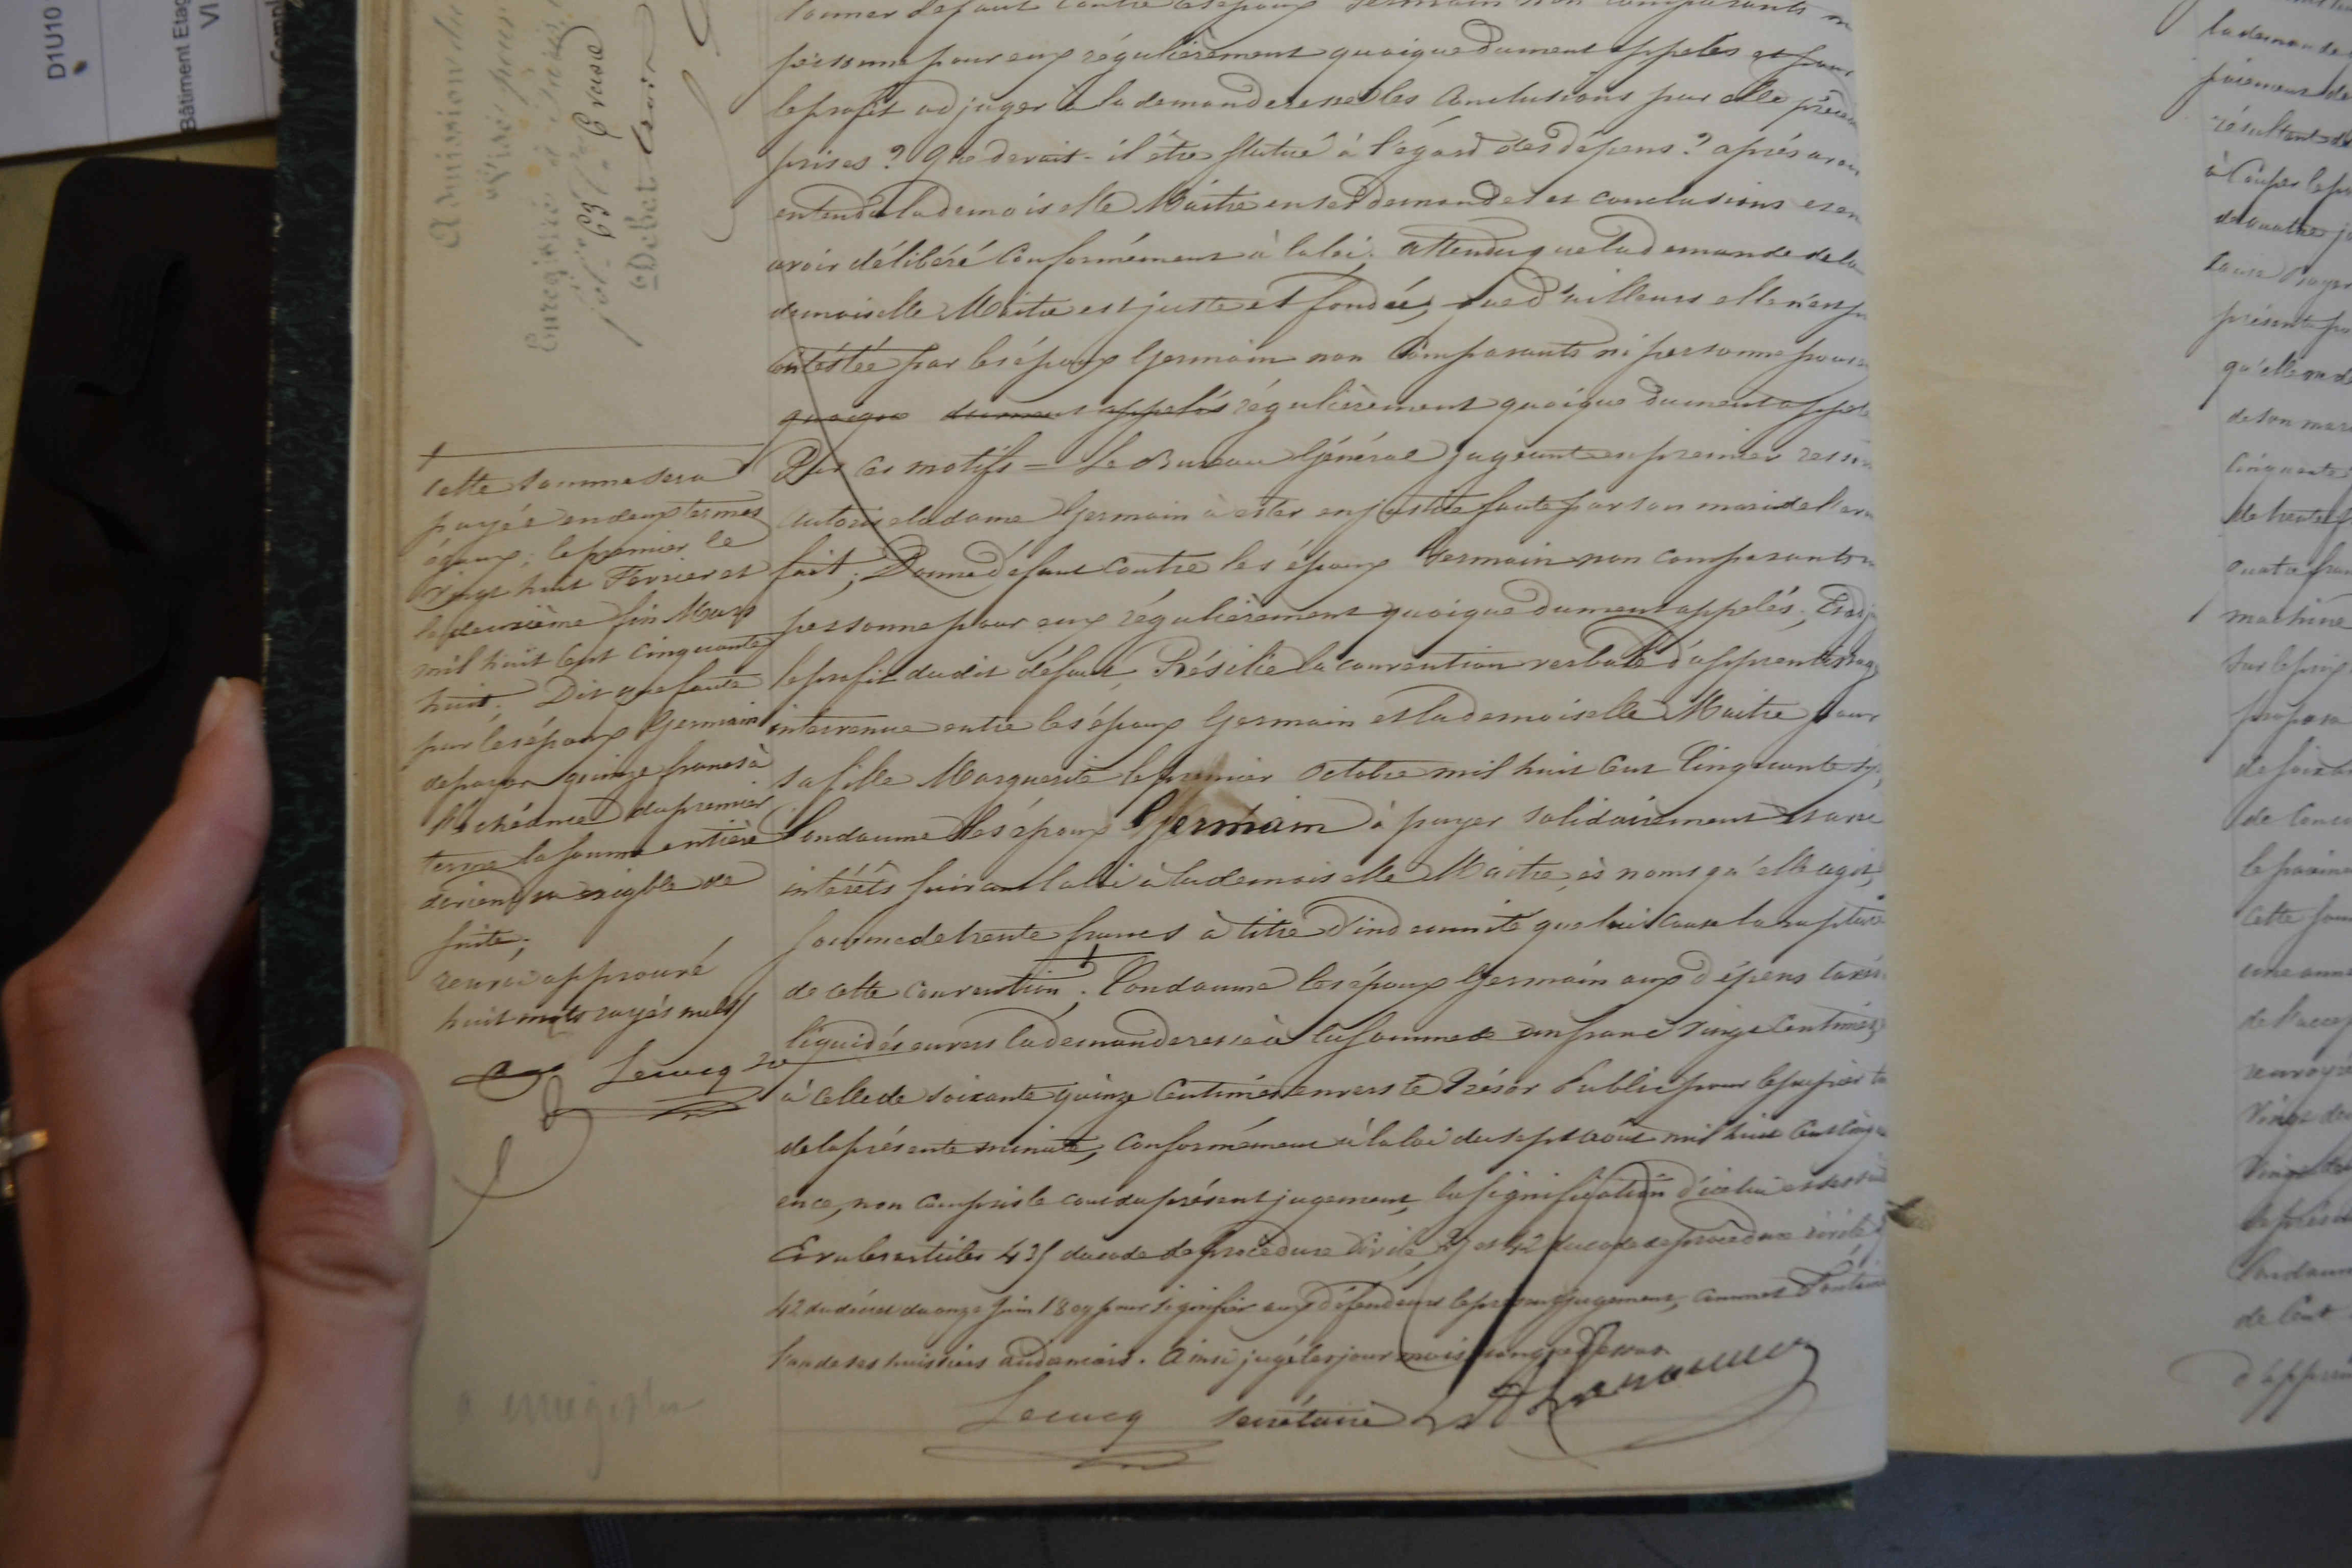 D1U10
Bâtiment Etag
VI
Compl
donner défaut contre les époux Germain non comparants ni
personne pour eux régulièrement quoique dument appelés et pour
le profit adjuger à la demanderesse les Conclusions par elle précé
prises ? Que devait-il être statué à l'égard des dépens ? après avoir
entendu la demoiselle Maitre en ses demandes et conclusions et en
avoir délibéré Conformément à la loi ; attendu que la demande de la
demoiselle Maitre est juste et fondée, que d'ailleurs elle n'est pa
Contéstée par les époux Germain non Comparants ni personne pour
quoique dument appelés régulièrement quoique dument appelé
Par ces motifs = Le Bureau Général jugeant en premier ressor
Autorise la dame Germain à ester en justice faute par son mari de l'avoi
fait ; Donne défaut contre les époux Germain non comparants n
personne pour eux régulièrement quoique dument appelés ; Et adj
le profit dudit défaut, Résilie la convention verbale d'apprentissage
intervenue entre les époux Germain et la demoiselle Maitre pour
sa fille Marguerite le premier Octobre mil huit Cent Cinquante sep,
Condamne les époux Germain à payer solidairement avec
intérêts suivant la loi à la demoiselle Maitre, ès noms qu'elle agit,
somme de trente francs à titre d'indemnité que lui cause la rupture
de cette convention ; Condamne les époux Germain aux dépens taxés
liquidés envers la demanderesse à la somme de un franc vingt Centimes,
à Celle de soixante quinze Centimes envers le Trésor Public pour le papier ti
de la présente minute, Conformément à la loi du sept août mil huit Cent Cinqu
ence, non compris le coût du présent jugement, la signification d'icelui et ses sui
Et vu les articles 435 du code de procédure Civile, 27 et 42 du code de procédure civile
42 du décret du onze Juin 1809 pour signifier aux défendeurs le présent jugement, commet
l'un de ses huissiers audienciers. Ainsi jugé les jour mois et an que dessus
Lecucq secrétaire
A Mission du
Enregistré à
fol. 63
Débet
Cette somme sera
payée en deux termes
égaux ; le premier le
vingt huit Fevrier et
le deuxième fin Mars
mil huit Cent Cinquante
huit. Dit que faute
par les époux Germain
de payer quinze francs à
l'échéance du premier
terme la somme entière
deviendra exigible de
suite ;
renvoi approuvé
huit mots rayés nuls
Lecucq
a enregistrer
la demande
paiement de
résultant de
à Couper le
de quatre jo
présente pa
qu'elle
de son mari
Cinquante
de trente f
quatre fran
machine
sur le prix
proposa
de
de
le
Cette som
une anné
de l'accep
renvoye
Vingt
Vingt
le
Condamn
de Cent
d'appren